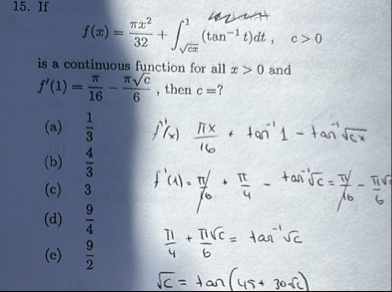 15. If
f(x) = πx²/32 + ∫_{√cx}^{1} (tan⁻¹ t)dt , c > 0
is a continuous function for all x > 0 and
f'(1) = π/16 − π√c/6 , then c =?
(a) 1/3
(b) 4/3
(c) 3
(d) 9/4
(e) 9/2
f'(x) πx/16 + tan⁻¹ 1 − tan⁻¹ √cx
f'(1) = π/16 + π/4 − tan⁻¹ √c = π/16 − π√c/6
π/4 + π√c/6 = tan⁻¹ √c
√c = tan(45 + 30√c)